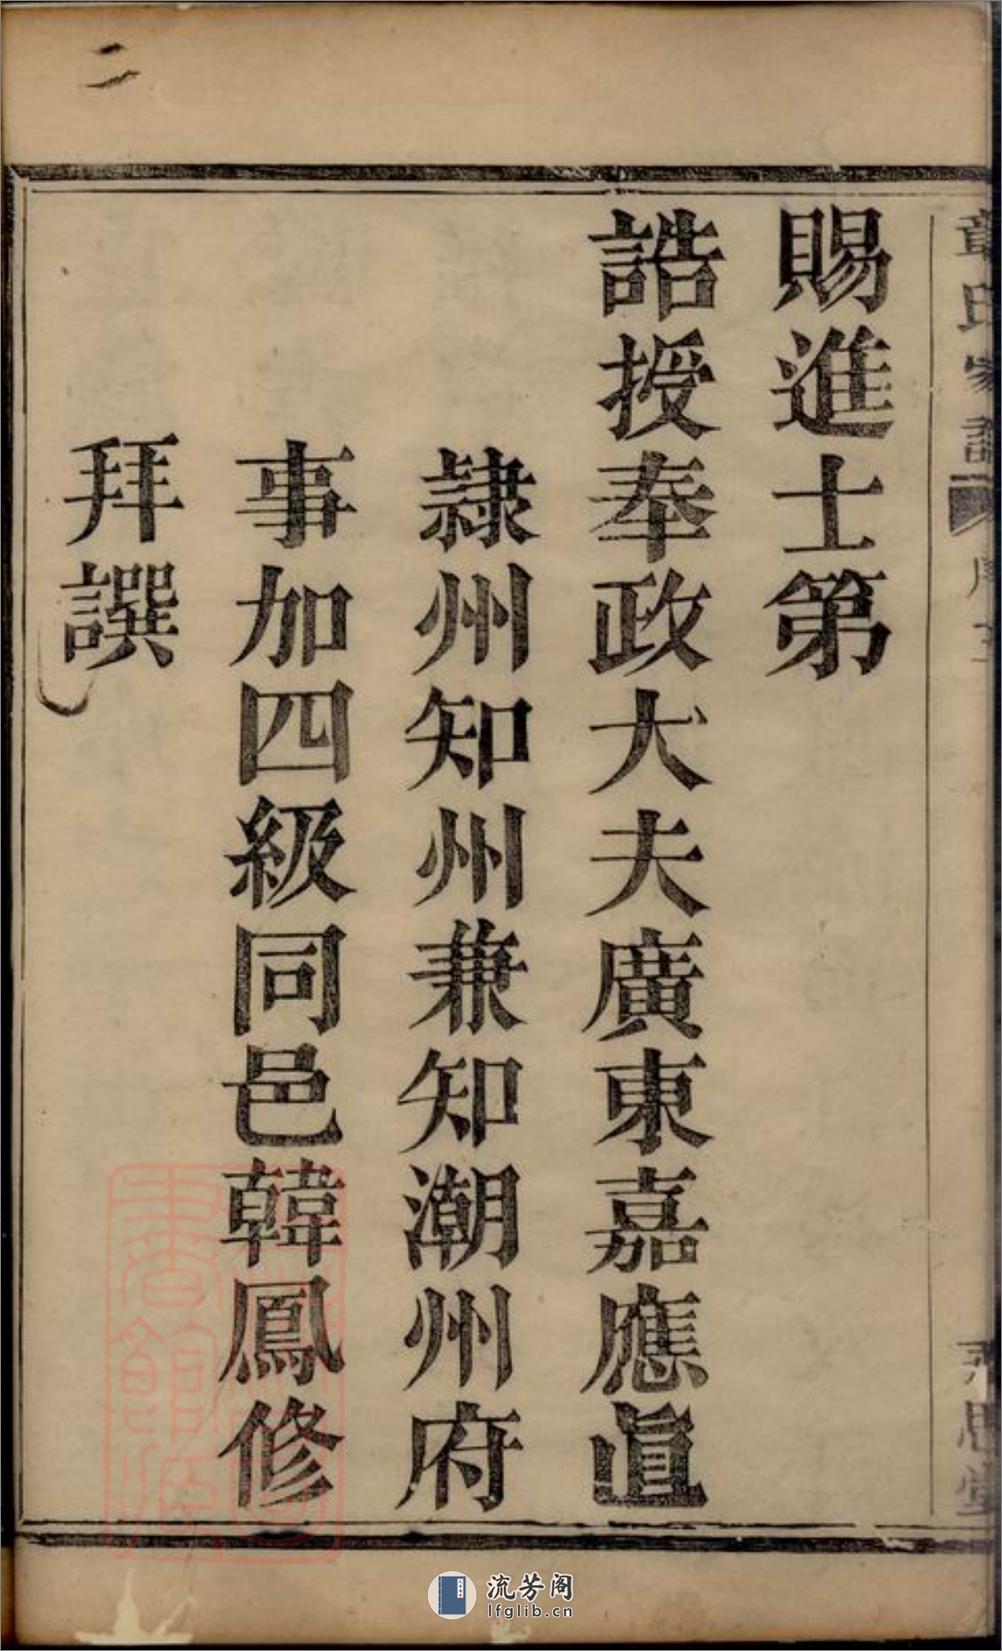 章氏家譜 序 永思堂
賜進士第
誥授奉政大夫廣東嘉應直
隸州知州兼知潮州府
事加四級同邑韓鳳修
拜譔
二
流芳阁
lfglib.cn